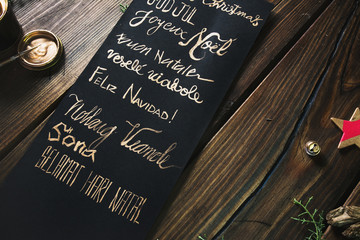 GOD JUL
Christmas
Joyeux Noël
buon Natale
veselé vianoce
Feliz Navidad!
SELAMAT HARI NATAL